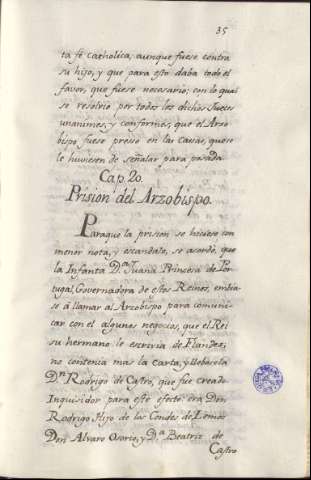 35
ta fé catholica, aunque fuese contra
su hijo, y que para esto daba todo el
favor, que fuese necesario: con lo qual
se resolvio por todos los dichos Jueces
unanimes, y conformes, que el Arzo
bispo fuese presso en las casas, que se
le huviesen de señalar para posada
Cap. 20.
Prision del Arzobispo.
Paraque la prision se hiciese con
menor nota, y escandalo, se acordò, que
la Infanta D.ª Juana Princesa de Por
tugal, Governadora de estos Reinos, embia-
se â llamar al Arzobispo para comuni
car con el algunos negocios, que el Rei
su hermano le escrivia de Flandes;
no contenia mas la carta, y llebosela
D.n Rodrigo de Castro, que fue creado
Inquisidor para este efecto: era Don
Rodrigo Hijo de los Condes de Lemos
Don Alvaro Osorio, y D.ª Beatriz de
Castro